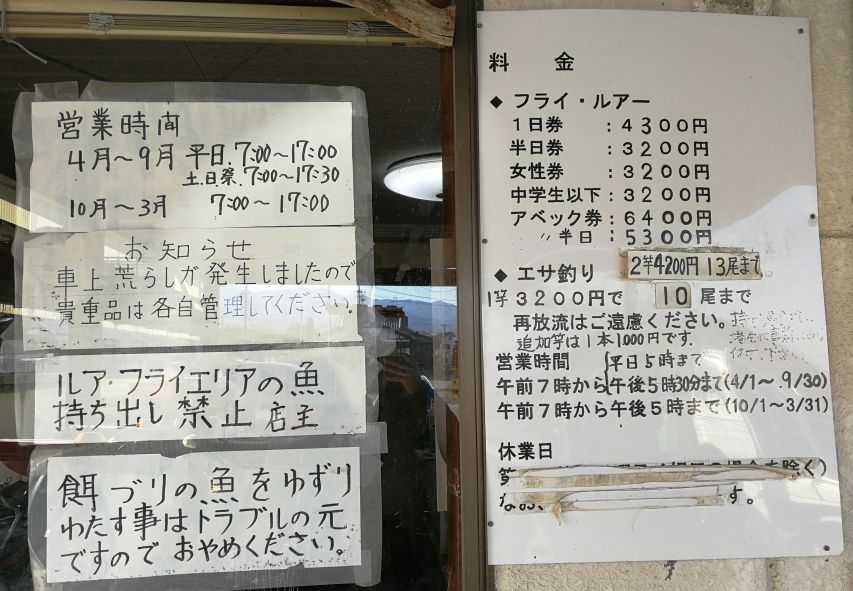 営業時間
4月～9月 平日.7:00～17:00
土.日祭.7:00～17:30
10月～3月 7:00～17:00
お知らせ
車上荒らしが発生しましたので
貴重品は各自管理してください.
ルア・フライエリアの魚
持ち出し禁止 店主
餌づりの魚をゆずり
わたす事はトラブルの元
ですのでおやめください.
料 金
◆ フライ・ルアー
1日券 : 4300円
半日券 : 3200円
女性券 : 3200円
中学生以下 : 3200円
アベック券 : 6400円
〃 半日 : 5300円
◆ エサ釣り 2竿4200円13尾まで
1竿3200円で 10 尾まで
再放流はご遠慮ください。
追加竿は1本1.000円です.
営業時間 平日5時まで
午前7時から午後5時30分まで(4/1～.9/30)
午前7時から午後5時まで(10/1～3/31)
休業日
を除く)
なお、 す。